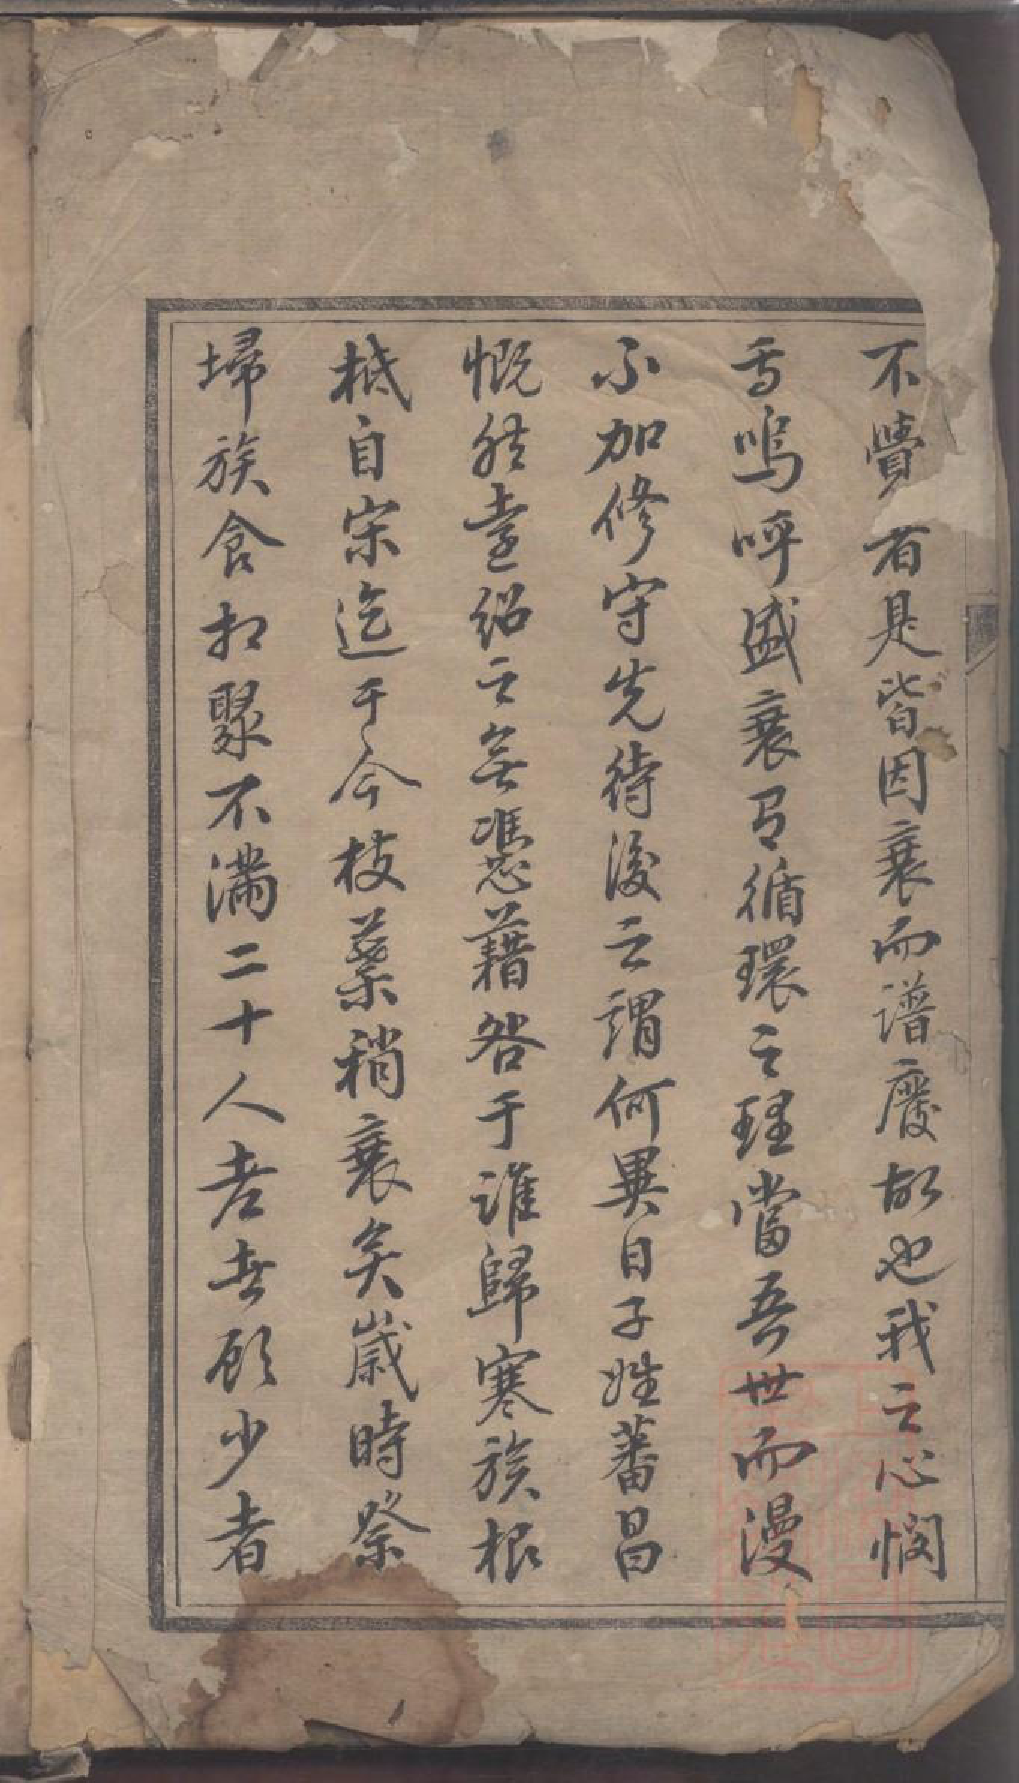 不覺者是皆因衰而譜廢故也我之心憫
焉嗚呼盛衰乃循環之理當吾世而漫
不加修守先待後之謂何異日子姓蕃昌
慨然壹紹之無憑藉咎于誰歸寒族根
柢自宗迄于今枝葉稍衰矣歲時祭
埽族食相聚不滿二十人老者顧少者